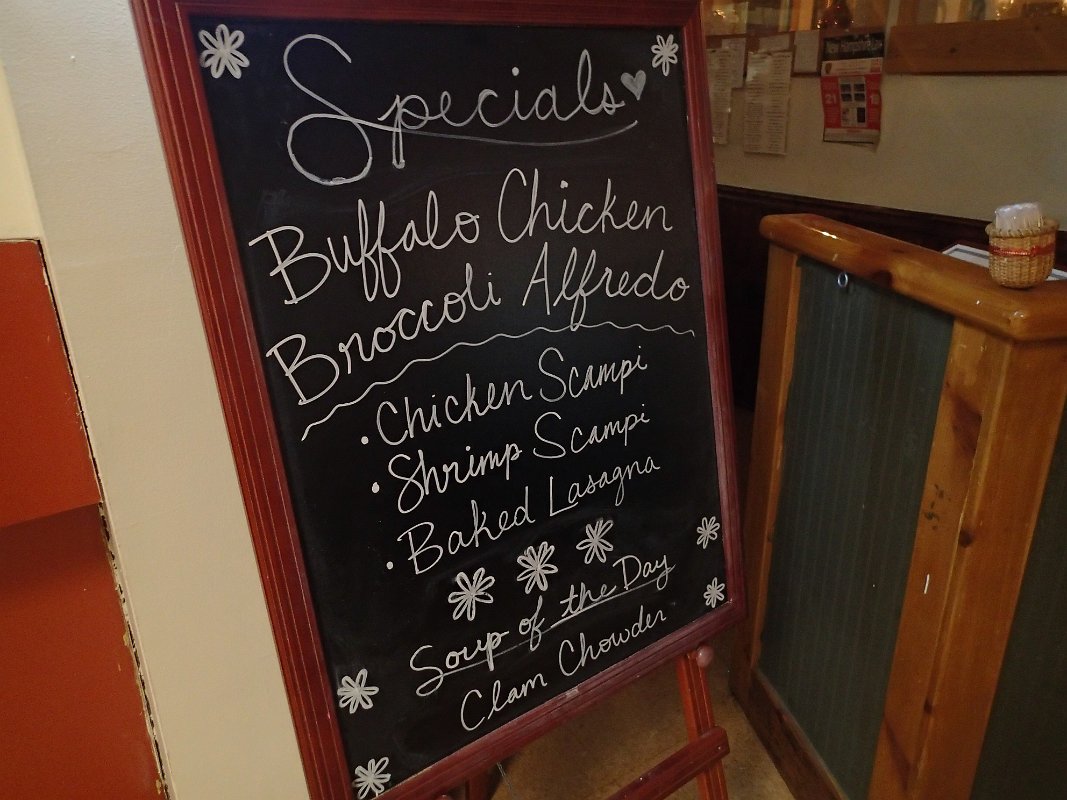 Specials
Buffalo Chicken
Broccoli Alfredo
• Chicken Scampi
• Shrimp Scampi
• Baked Lasagna
Soup of the Day
Clam Chowder